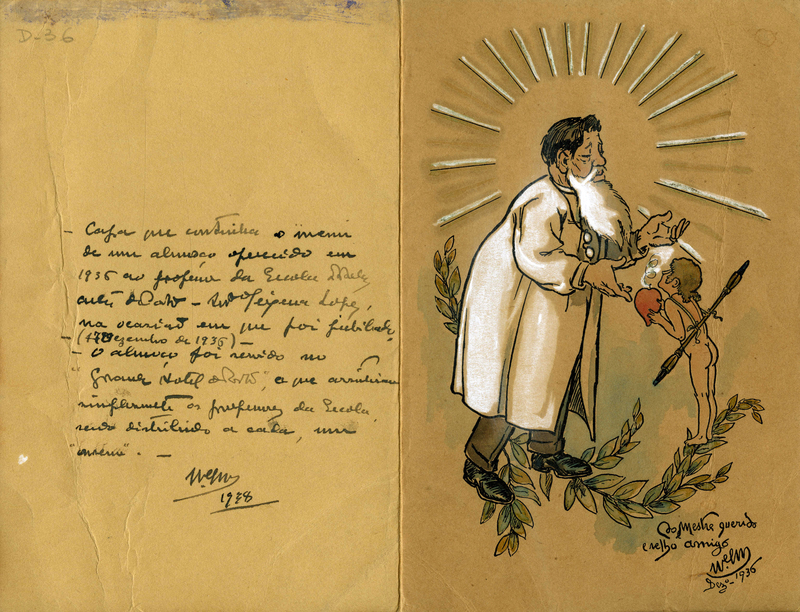 D-36
- Capa que continha o "menu"
de um almoço oferecido em
1936 ao profesor da Escola Belas
artes do Porto - Teixeira Lopes,
na ocasião em que foi jubilado
Dezembro de 1936) -
- O almoço foi servido no
"Grande Hotel do Porto", a que assistiram
simplesmente os professores da Escola,
sendo distribuido a cada, um
"menu". -
Ao Mestre querido
e velho amigo
Dezº - 1936